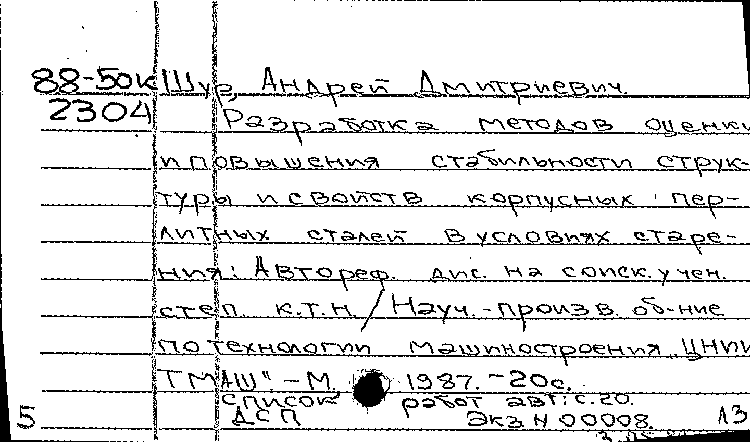 88-50к Шур, Андрей Дмитриевич.
2304 Разработка методов оценки
и повышения стабильности струк-
туры и свойств корпусных пер-
литных сталей в условиях старе-
ния: Автореф. дис. на соиск. учен.
степ. к.т.н. / Науч.-произв. об-ние
по технологии машиностроения "ЦНИИ
ТМАШ". - М. 1987. - 20с.
список работ авт: с.20.
5 ДСП Экз N 00008. А3